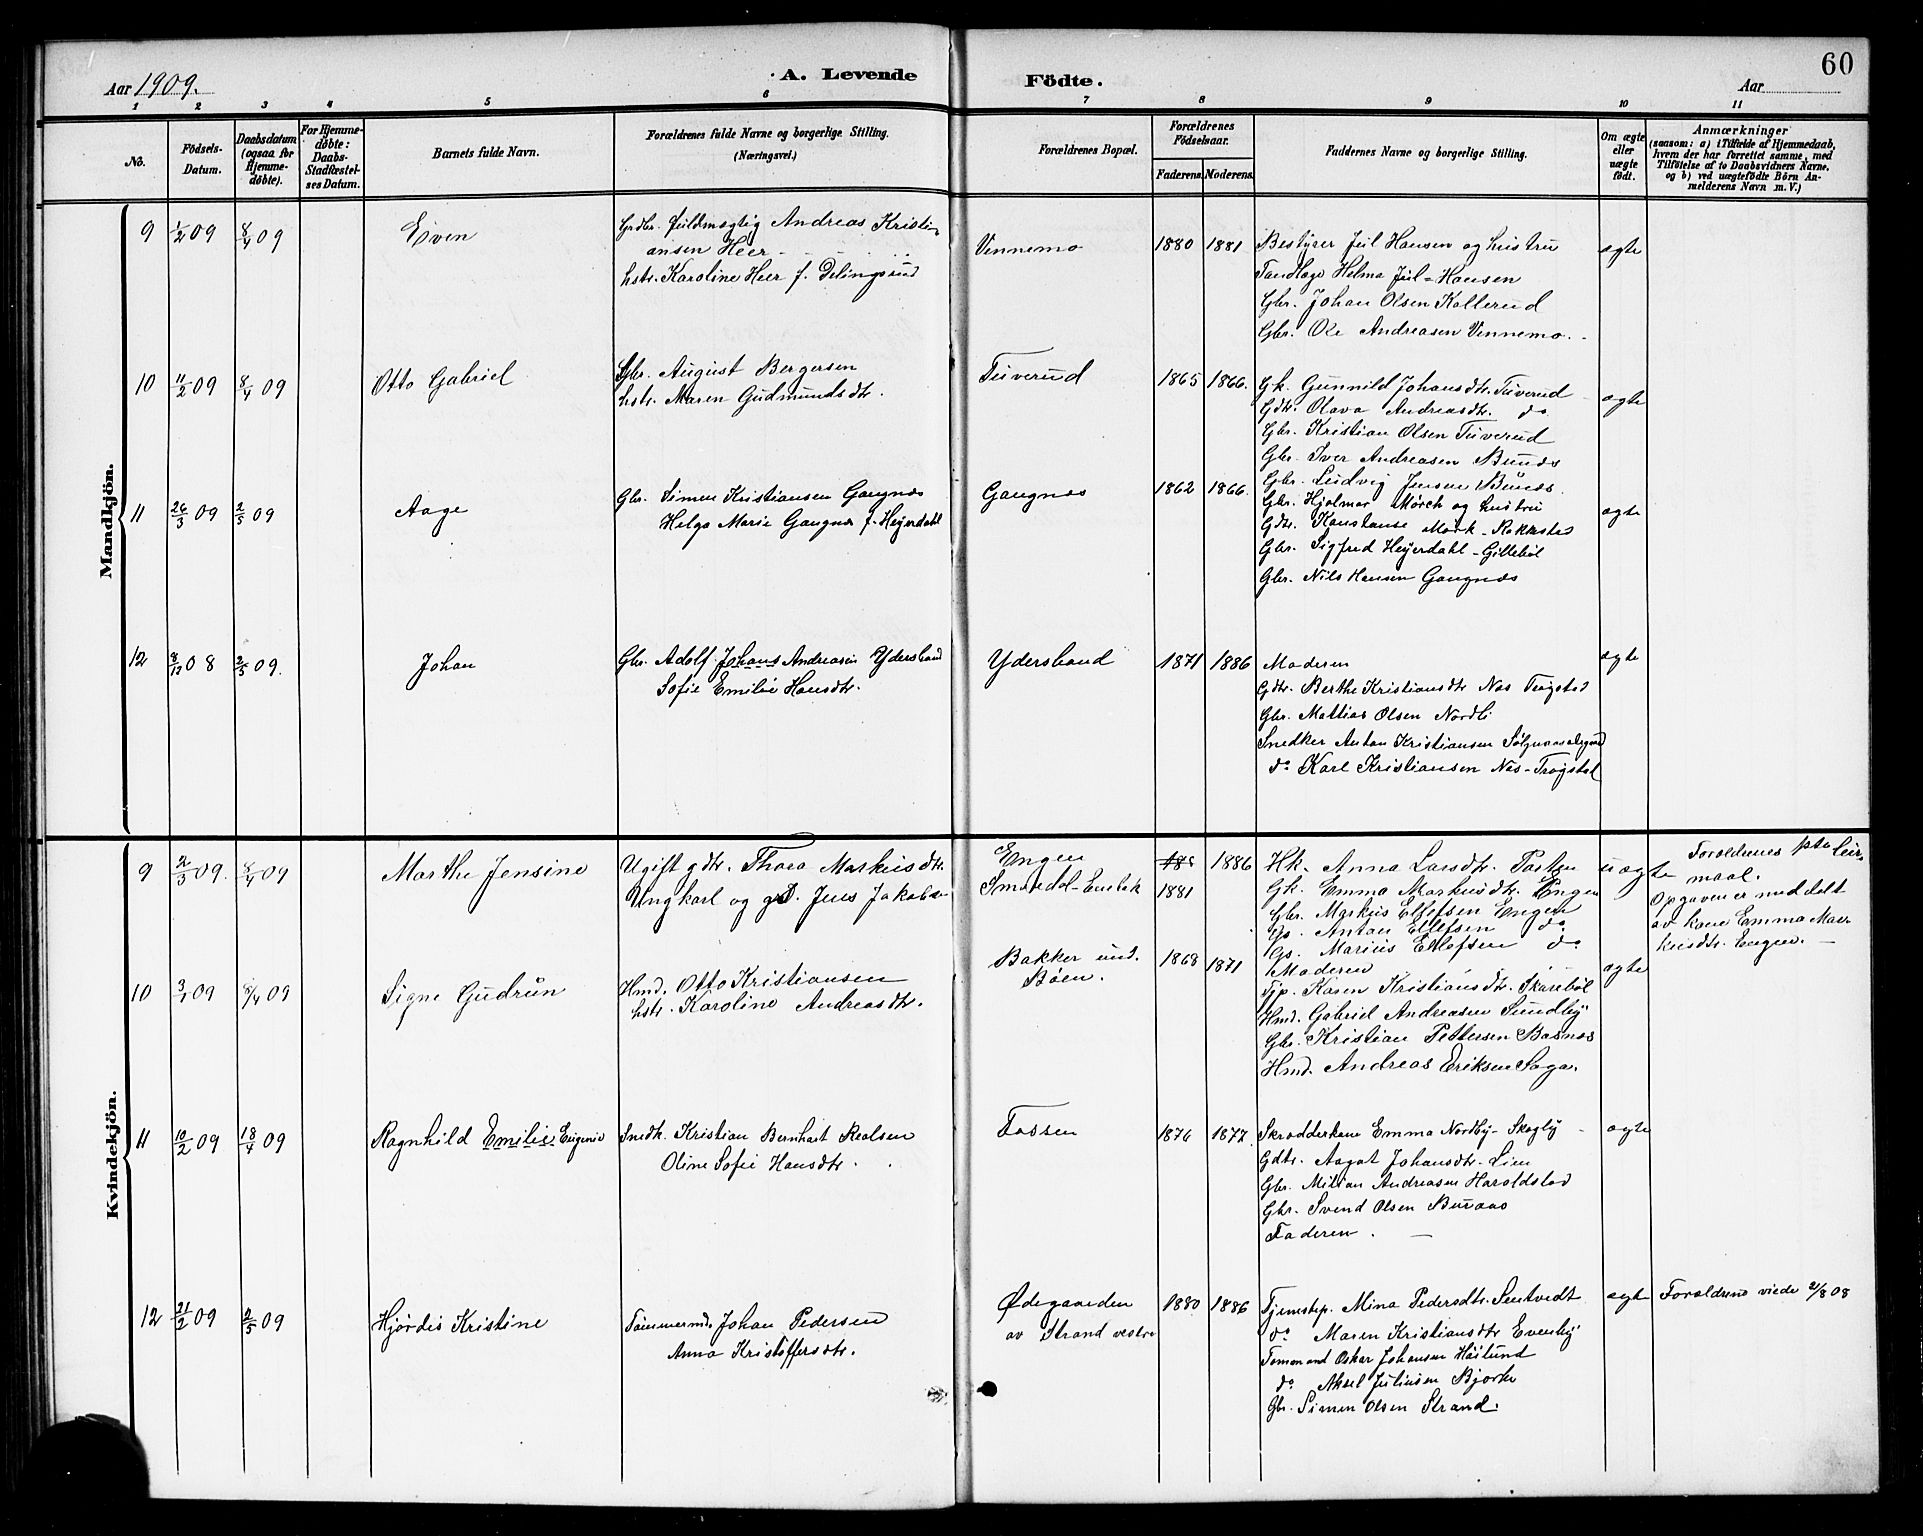 60
Aar 1909.
A. Levende
Födte.
Aar
1 2 3 4 5 6 7 8 9 10 11
No.
Födsels-Datum.
Daabsdatum (ogsaa for Hjemmedøbte).
For Hjemmedøbte: Daabs-Stadfæstelses Datum.
Barnets fulde Navn.
Forældrenes fulde Navne og borgerlige Stilling.
(Næringsvei.)
Forældrenes Bopæl.
Forældrenes Födselsaar.
Faderens. Moderens.
Faddernes Navne og borgerlige Stilling.
Om ægte eller uægte födt.
Anmærkninger
(saasom: a) i Tilfælde af Hjemmedaab, hvem der har forrettet samme, med Tilföielse af to Daabsvidners Navne, og b) ved uægtefödte Börn Anmelderens Navn m. V.)
Mandkjön.
9 1/2 09 8/4 09 Even
Grdbr. fuldmægtig Andreas Kristi-
ansen Heer
hstr. Karoline Heer f. Delingsrud
Vennemo 1880 1881
Bestyrer Juil Hansen og hustru
Tandlæge Helma Juil-Hansen
Gbr. Johan Olsen Kallerud
Gbr. Ole Andreasen Vennemo.
ægte
10 11/2 09 8/4 09 Otto Gabriel
Gbr. August Bergersen
hstr. Maren Gudmundsdtr.
Tuverud 1865 1866.
Gk. Gunnild Johansdtr. Tuverud
Gdtr. Olava Andreasdtr. do
Gbr. Kristian Olsen Tuverud
Gbr. Iver Andreasen Bunæs
Gbr. Ludvig Jensen Bunæs.
ægte
11 26/3 09 2/5 09 Aage
Gbr. Simen Kristiansen Gangnæs
Helga Marie Gangnæs f. Heyerdahl
Gangnæs 1862 1866.
Gbr. Hjalmar Mørch og hustru
Gdtr. Konstanse Mørk-Rakkestad
Gbr. Sigfred Heyerdahl-Gillebøl
Gbr. Nils Hansen Gangnæs
ægte
12 8/12 08 2/5 09. Johan
Gbr. Adolf Johans Andreasen Ydersbond
Sofie Emilie Hansdtr.
Ydersbond 1871 1886
Moderen
Gdtr. Berthe Kristiansdtr Næs Trøgstad
Gbr. Mattias Olsen Nordli
Snedker Anton Kristiansen
do Karl Kristiansen Næs-Trøgstad
ægte
Kvindekjön.
9 2/3 09. 8/4 09 Marthe Jensine
Ugift gdtr. Thora Markusdtr.
Ungkarl og gs. Jens Jakobsen
Engen 188 1886
Smørdal-Enebak 1881
Hk. Anna Larsdtr.
Gk. Emma Markusdtr. Engen
Gbr. Markus Ellefsen Engen
Gs. Anton Ellefsen do
Gs. Marius Ellefsen do
uægte
Forældrenes 1ste leier-
maal.
Opgaven er meddelt
av kone Emma Mar-
kusdtr. Engen.
10 3/1 09 8/4 09 Signe Gudrun
Hmd. Otto Kristiansen
hstr. Karoline Andreasdtr.
Bakker und.
Böen. 1868 1871
Moderen
Tjp. Karen Kristiansdtr. Skarebøl
Hmd. Gabriel Andreasen Sundby
Gbr. Kristian Pettersen Basnæs
Hmd. Andreas Eriksen Saga.
ægte
11 10/2 09 18/4 09 Ragnhild Emilie Eugenie
Snedk. Kristian Bernhart Realsen
Oline Sofie Hansdtr.
Fossen 1876 1877
Skrædderkone Emma Nordby-Skogly
Gdtr. Aagot Johansdtr. Lien
Gbr. Milian Andreasen Haroldstad
Gbr. Svend Olsen Buraas
Faderen.
ægte
12 21/2 09 2/5 09 Hjördis Kristine
Tømmermd. Johan Pedersen
Anna Kristoffersdtr.
Ødegaarden
av Strand vestre 1880 1886
Tjenestep. Mina Pedersdtr. Sentvedt
do Maren Kristiansdtr Evenby
Tømmermand Oskar Johansen Høilund
do Aksel Juliusen Bjørke
Gbr. Simen Olsen Strand.
ægte
Forældrene viede 21/8 08